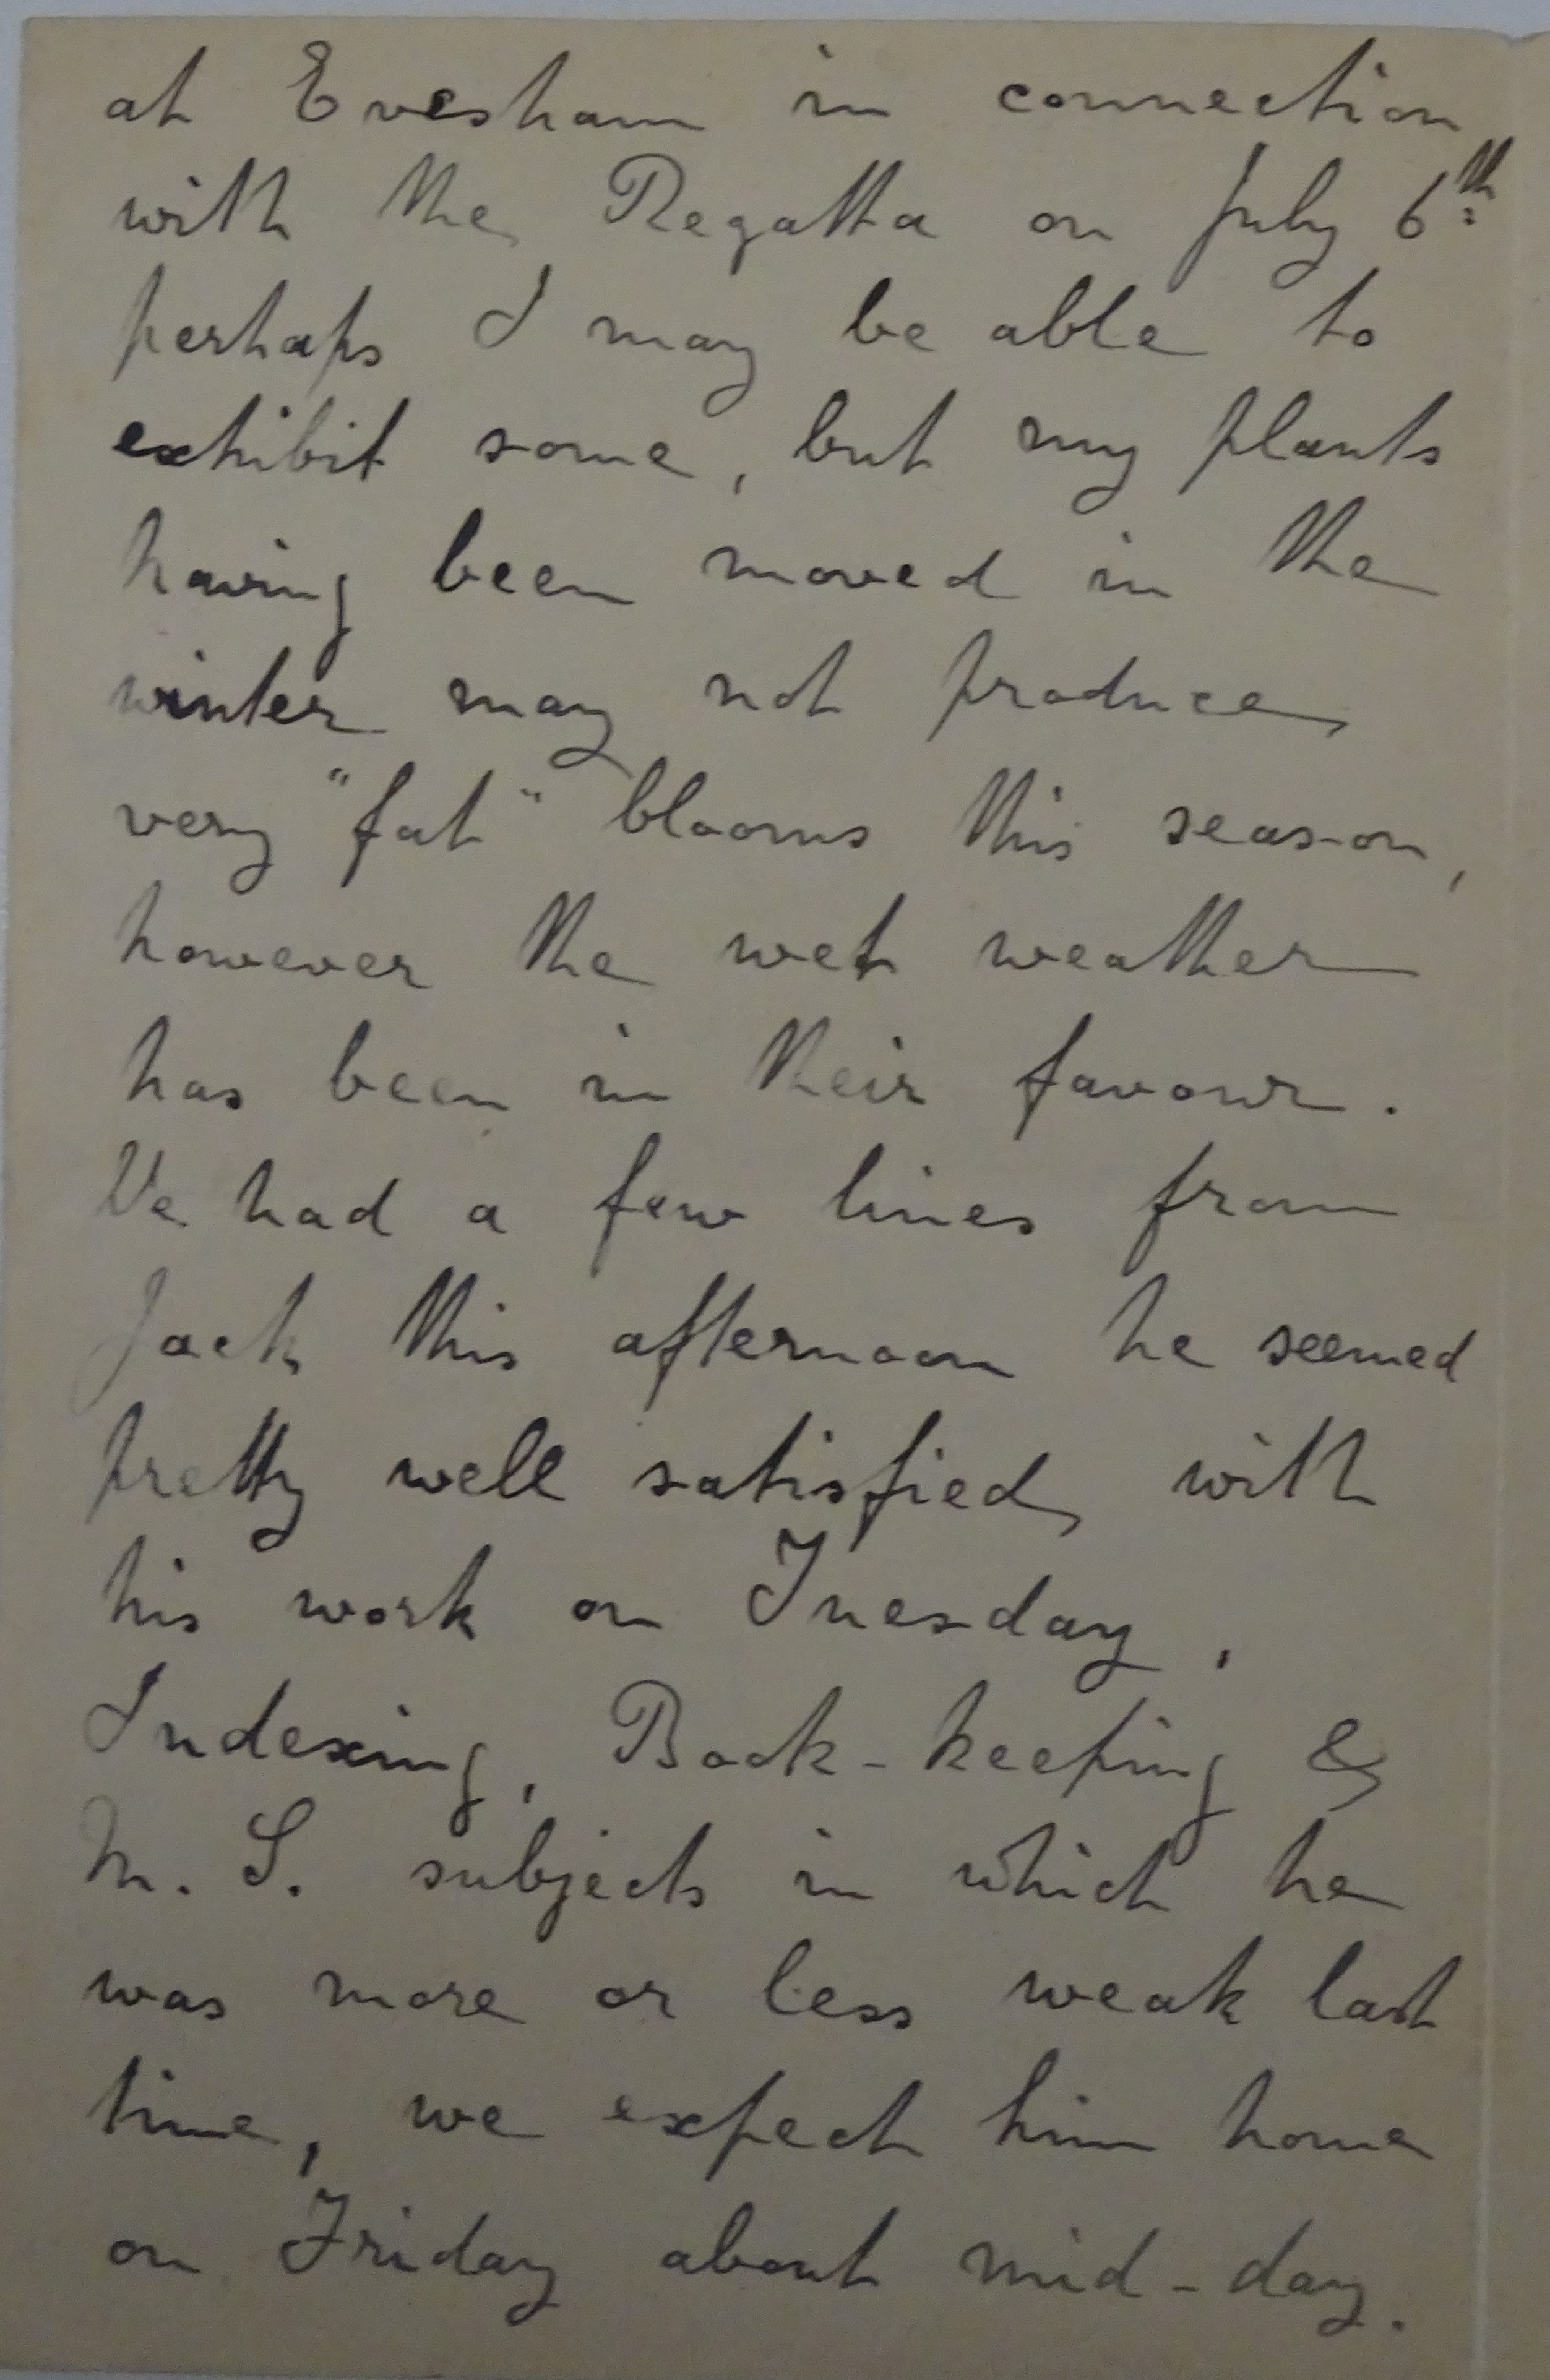 at Evesham in connection
with the Regatta on July 6th
perhaps I may be able to
exhibit some, but my plants
having been moved in the
winter may not produce
very "fat" blooms this season,
however the wet weather
has been in their favour.
We had a few lines from
Jack this afternoon he seemed
pretty well satisfied with
his work on Tuesday,
Indexing, Book-keeping &
M.S. subjects in which he
was more or less weak last
time, we expect him home
on Friday about mid-day.